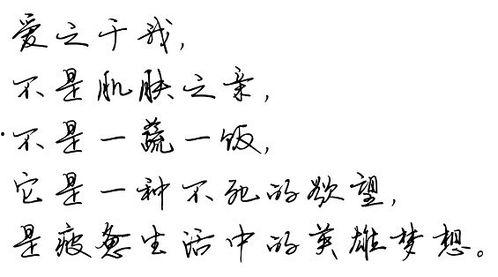 爱之于我,
不是肌肤之亲,
不是一蔬一饭,
它是一种不死的欲望,
是疲惫生活中的英雄梦想。